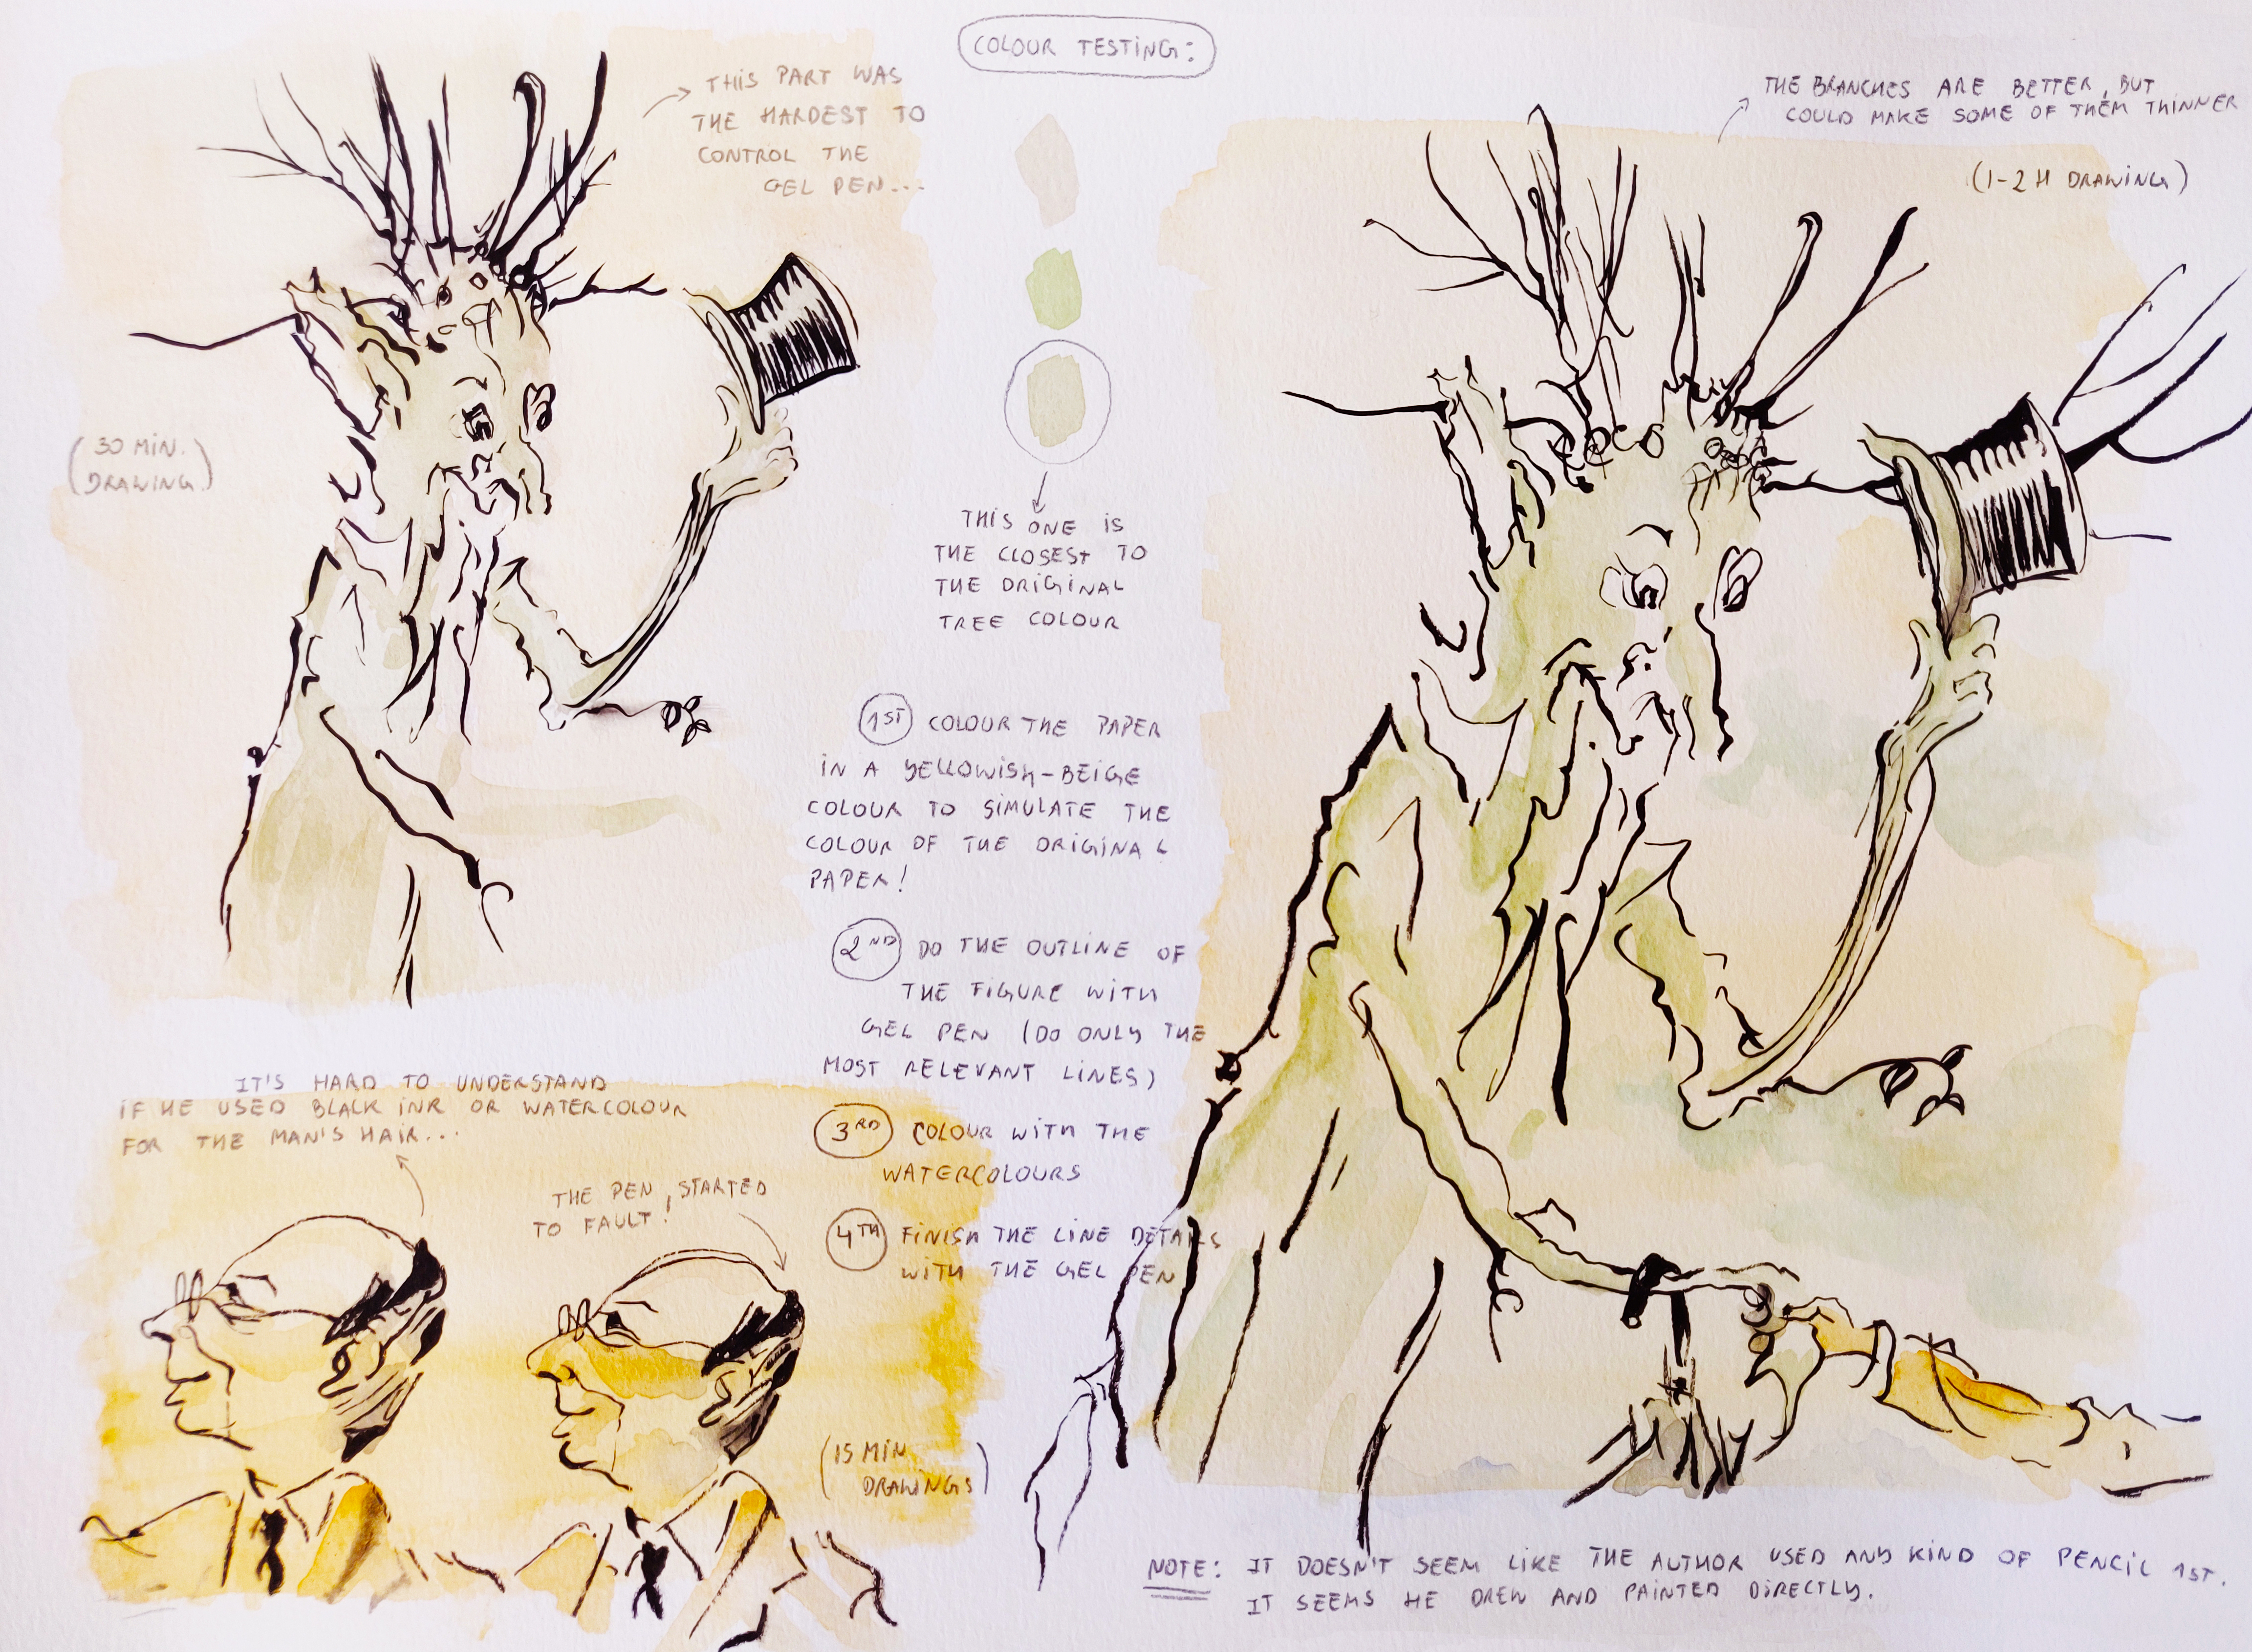 COLOUR TESTING:
THIS PART WAS
THE HARDEST TO
CONTROL THE
GEL PEN...
THE BRANCHES ARE BETTER, BUT
COULD MAKE SOME OF THEM THINNER
(1-2 H DRAWING)
(30 MIN.
DRAWING)
THIS ONE IS
THE CLOSEST TO
THE ORIGINAL
TREE COLOUR
1ST COLOUR THE PAPER
IN A YELLOWISH-BEIGE
COLOUR TO SIMULATE THE
COLOUR OF THE ORIGINAL
PAPER!
2ND DO THE OUTLINE OF
THE FIGURE WITH
GEL PEN (DO ONLY THE
MOST RELEVANT LINES)
3RD COLOUR WITH THE
WATERCOLOURS
4TH FINISH THE LINE DETAILS
WITH THE GEL PEN
IT'S HARD TO UNDERSTAND
IF HE USED BLACK INK OR WATERCOLOUR
FOR THE MAN'S HAIR...
THE PEN, STARTED
TO FAULT!
(15 MIN.
DRAWINGS)
NOTE: IT DOESN'T SEEM LIKE THE AUTHOR USED ANY KIND OF PENCIL 1ST.
IT SEEMS HE DREW AND PAINTED DIRECTLY.